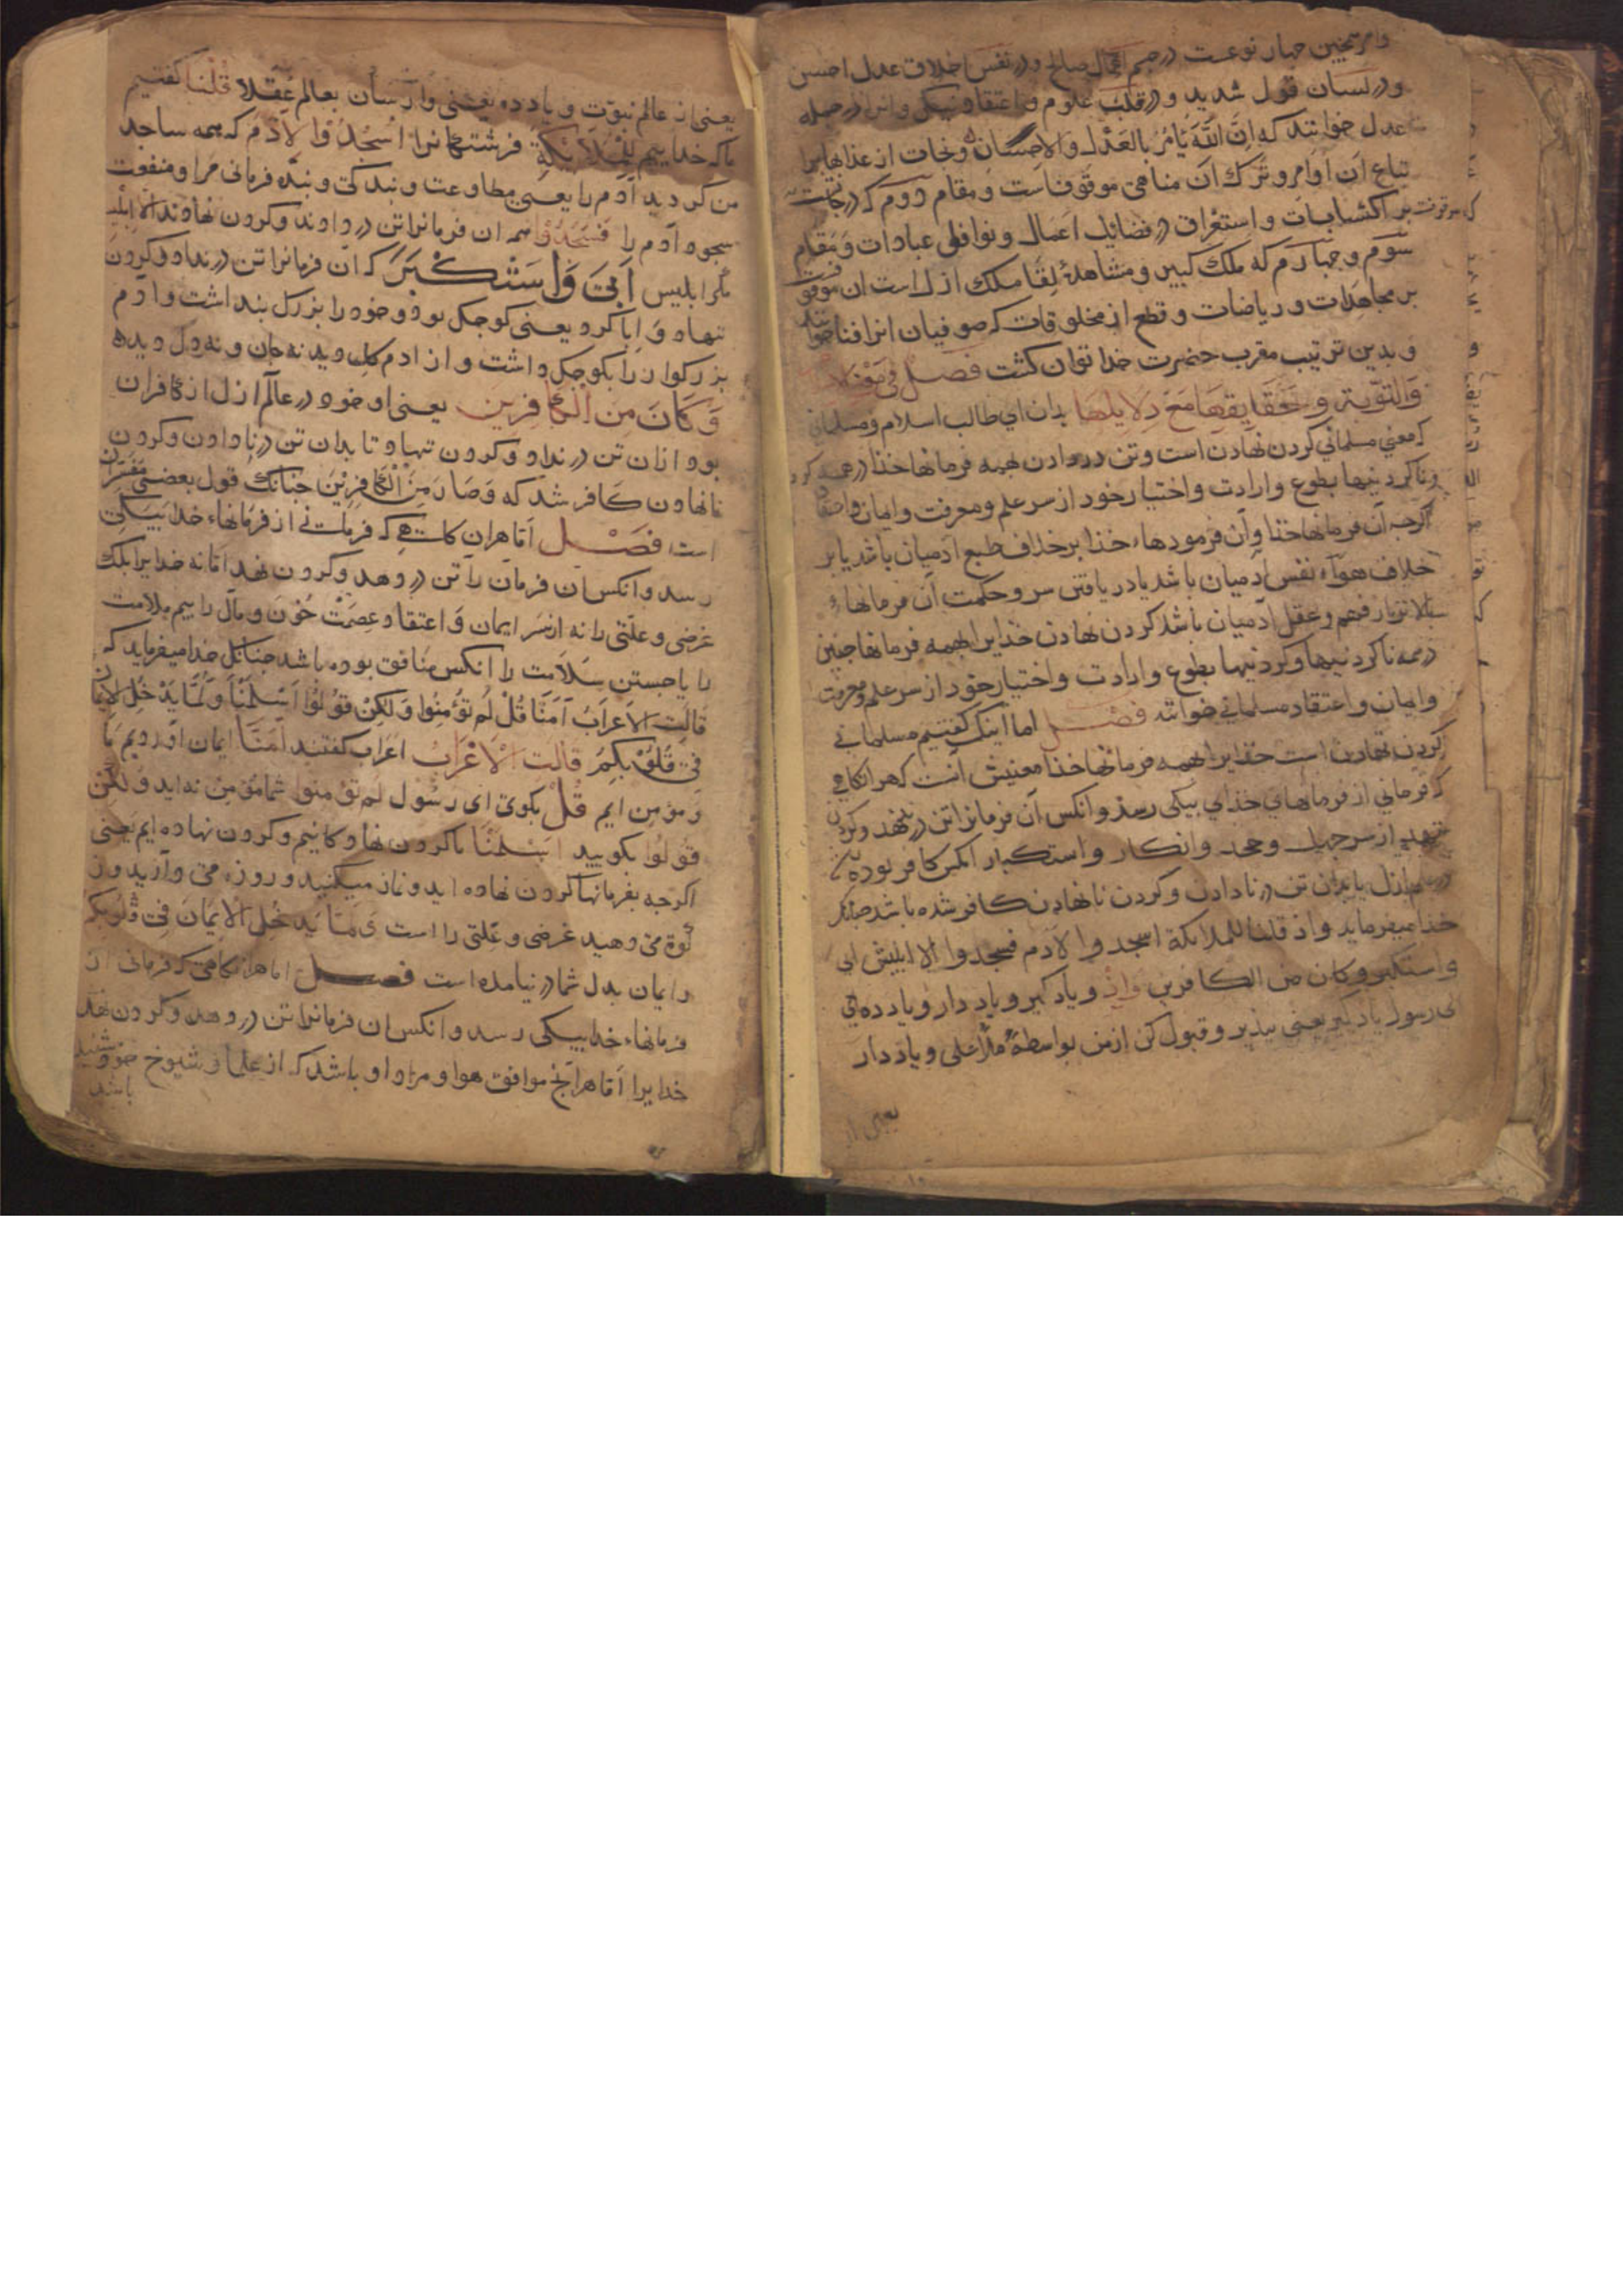 و امر همچنین چهار نوعست در جسم اعمال صالح و در نفس اخلاق عدل احسن
و در لسان قول شدید و در قلب علوم و اعتقاد نیکی و این را در جمله
عدل خوانند که اِنَّ اللّٰهَ یَأمُرُ بِالعَدْلِ وَالاِحْسَانِ و نجات از عذابها برا
تباع آن اوامر و ترک آن مناهی موقوفست و مقام دوم که درجاتست
بر اکتسابات و استغراق در فضایل اعمال و نوافل عبادات و مقام
سوم و چهارم که ملک کبیر و مشاهدهٔ لقا ملک ازل است آن موقوفست
بر مجاهدات و ریاضات و قطع از مخلوقات که صوفیان انرا فنا خوانند
و بدین ترتیب مقرب حضرت خدا توان گشت فصل فی
وَالتَّوْبَةِ وَحَقَایِقِهَا مَعَ دَلَایِلِهَا بدان ای طالب اسلام و مسلمانی
که معنی مسلمانی گردن نهادن است و تن در دادن بهمه فرمانها خدا در همه کرد
و ناکردنیها بطوع و ارادت و اختیار خود از سر علم و معرفت و ایمان و اعتقاد
اگرچه آن فرمانها خدا و آن فرمودهاء خدا برخلاف طبع ادمیان باشد یا بر
خلاف هواء نفس ادمیان باشد یا دریافتن سر و حکمت آن فرمانهاء
بالاتر از فهم و عقل ادمیان باشد گردن نهادن خدایرا بهمه فرمانها چنین
در همه ناکردنیها و کردنیها بطوع و ارادت و اختیار خود از سر علم و معرفت
و ایمان و اعتقاد مسلمانی خوانند فصل اما اینک گفتیم مسلمانی
گردن نهادن است خدایرا بهمه فرمانها خدا معنیش آنست که هر انگاهی
که فرمانی از فرمانهای خدای بیکی رسد و انکس آن فرمانرا تن در ندهد و گردن
ننهد از سر جهل و جحد و انکار و استکبار انکس کافر بوده
در عالم ازل یا بدان تن در نا دادن و گردن نا نهادن کافر شده باشد چنانکه
خدا میفرماید واذ قلنا للملایکة اسجدوا لادم فسجدوا الا ابلیس ابی
واستکبر وکان من الکافرین وَاِذْ و یاد گیر و یاد دار و یاد ده ای
ای رسول یاد گیر یعنی بپذیر و قبول کن ازمن بواسطهٔ ملأ اعلی و یاد دار
یعنی از
یعنی از عالم نبوّت و یاد ده یعنی وا رسان بعالم عقلا قُلْنَا گفتیم
ما که خداییم لِلْمَلَایِکَةِ فرشتگانرا اسْجُدُوا لِآدَمَ که همه ساجد
من گردید آدم را یعنی مطاوعت و بندگی و بنده فرمانی مرا و منفعت
سجود آدم را فَسَجَدُوا همه ان فرمانرا تن در دادند و گردن نهادند اِلّا اِبْلِیسَ
مگر ابلیس اَبیٰ وَاسْتَکْبَرَ که آن فرمانرا تن در نداد و گردن
ننهاد و ابا کرد یعنی کوچک بود و خود را بزرگ پنداشت و آدم
بزرگوار را بکوچک داشت و از ادم گل دید نه جان و نه دل دیده
وَکَانَ مِنَ الْکَافِرِینَ یعنی او خود در عالم ازل از کافران
بود از ان تن در نداد و گردن ننهاد و تا بدان تن در نا دادن و گردن
نا نهادن کافر شد که وَصَارَ مِنَ الْکَافِرِیْنَ چنانک قول بعضی مفسّران
است فصل اما هر ان گاهی که فرمانی از فرمانهاء خدا بیکی
رسد و انکس ان فرمان را تن در دهد و گردن نهد اما نه خدایرا بلک
غرضی و علّتی را نه از سر ایمان و اعتقاد عصمت خون و مال را بیم ملامت
را یا جستن سلامت را انکس منافق بوده باشد چنانک خدا میفرماید که
قَالَتِ الْاَعْرَابُ آمَنَّا قُلْ لَمْ تُؤْمِنُوا وَلٰکِنْ قُوْلُوْا اَسْلَمْنَا وَلَمَّا یَدْخُلِ الْاِیْمَانُ
فِیْ قُلُوْبِکُمْ قَالَتِ الْاَعْرَابُ اعراب گفتند آمَنَّا ایمان آوردیم ما
و مؤمن ایم قُلْ بگوی ای رسول لَمْ تُؤْمِنُوا شما مؤمن نه اید وَلٰکِنْ
قُوْلُوْا بگویید اَسْلَمْنَا ما گردن نهادگانیم و گردن نهاده ایم یعنی
اگرچه بفرمانها گردن نهاده اید و نماز میکنید و روزه می دارید و ز
کوة می دهید غرضی و علتی را است وَلَمَّا یَدْخُلِ الْاِیْمَانُ فِیْ قُلُوبِکُمْ
و ایمان بدل شما در نیامده است فصل اما هر انگاهی که فرمانی از
فرمانهاء خدا بیکی رسد و انکس ان فرمانرا تن در دهد و گردن نهد
خدایرا اما هر آنچ موافق هوا و مراد او باشد که از علما و شیوخ خود شنید
باشد